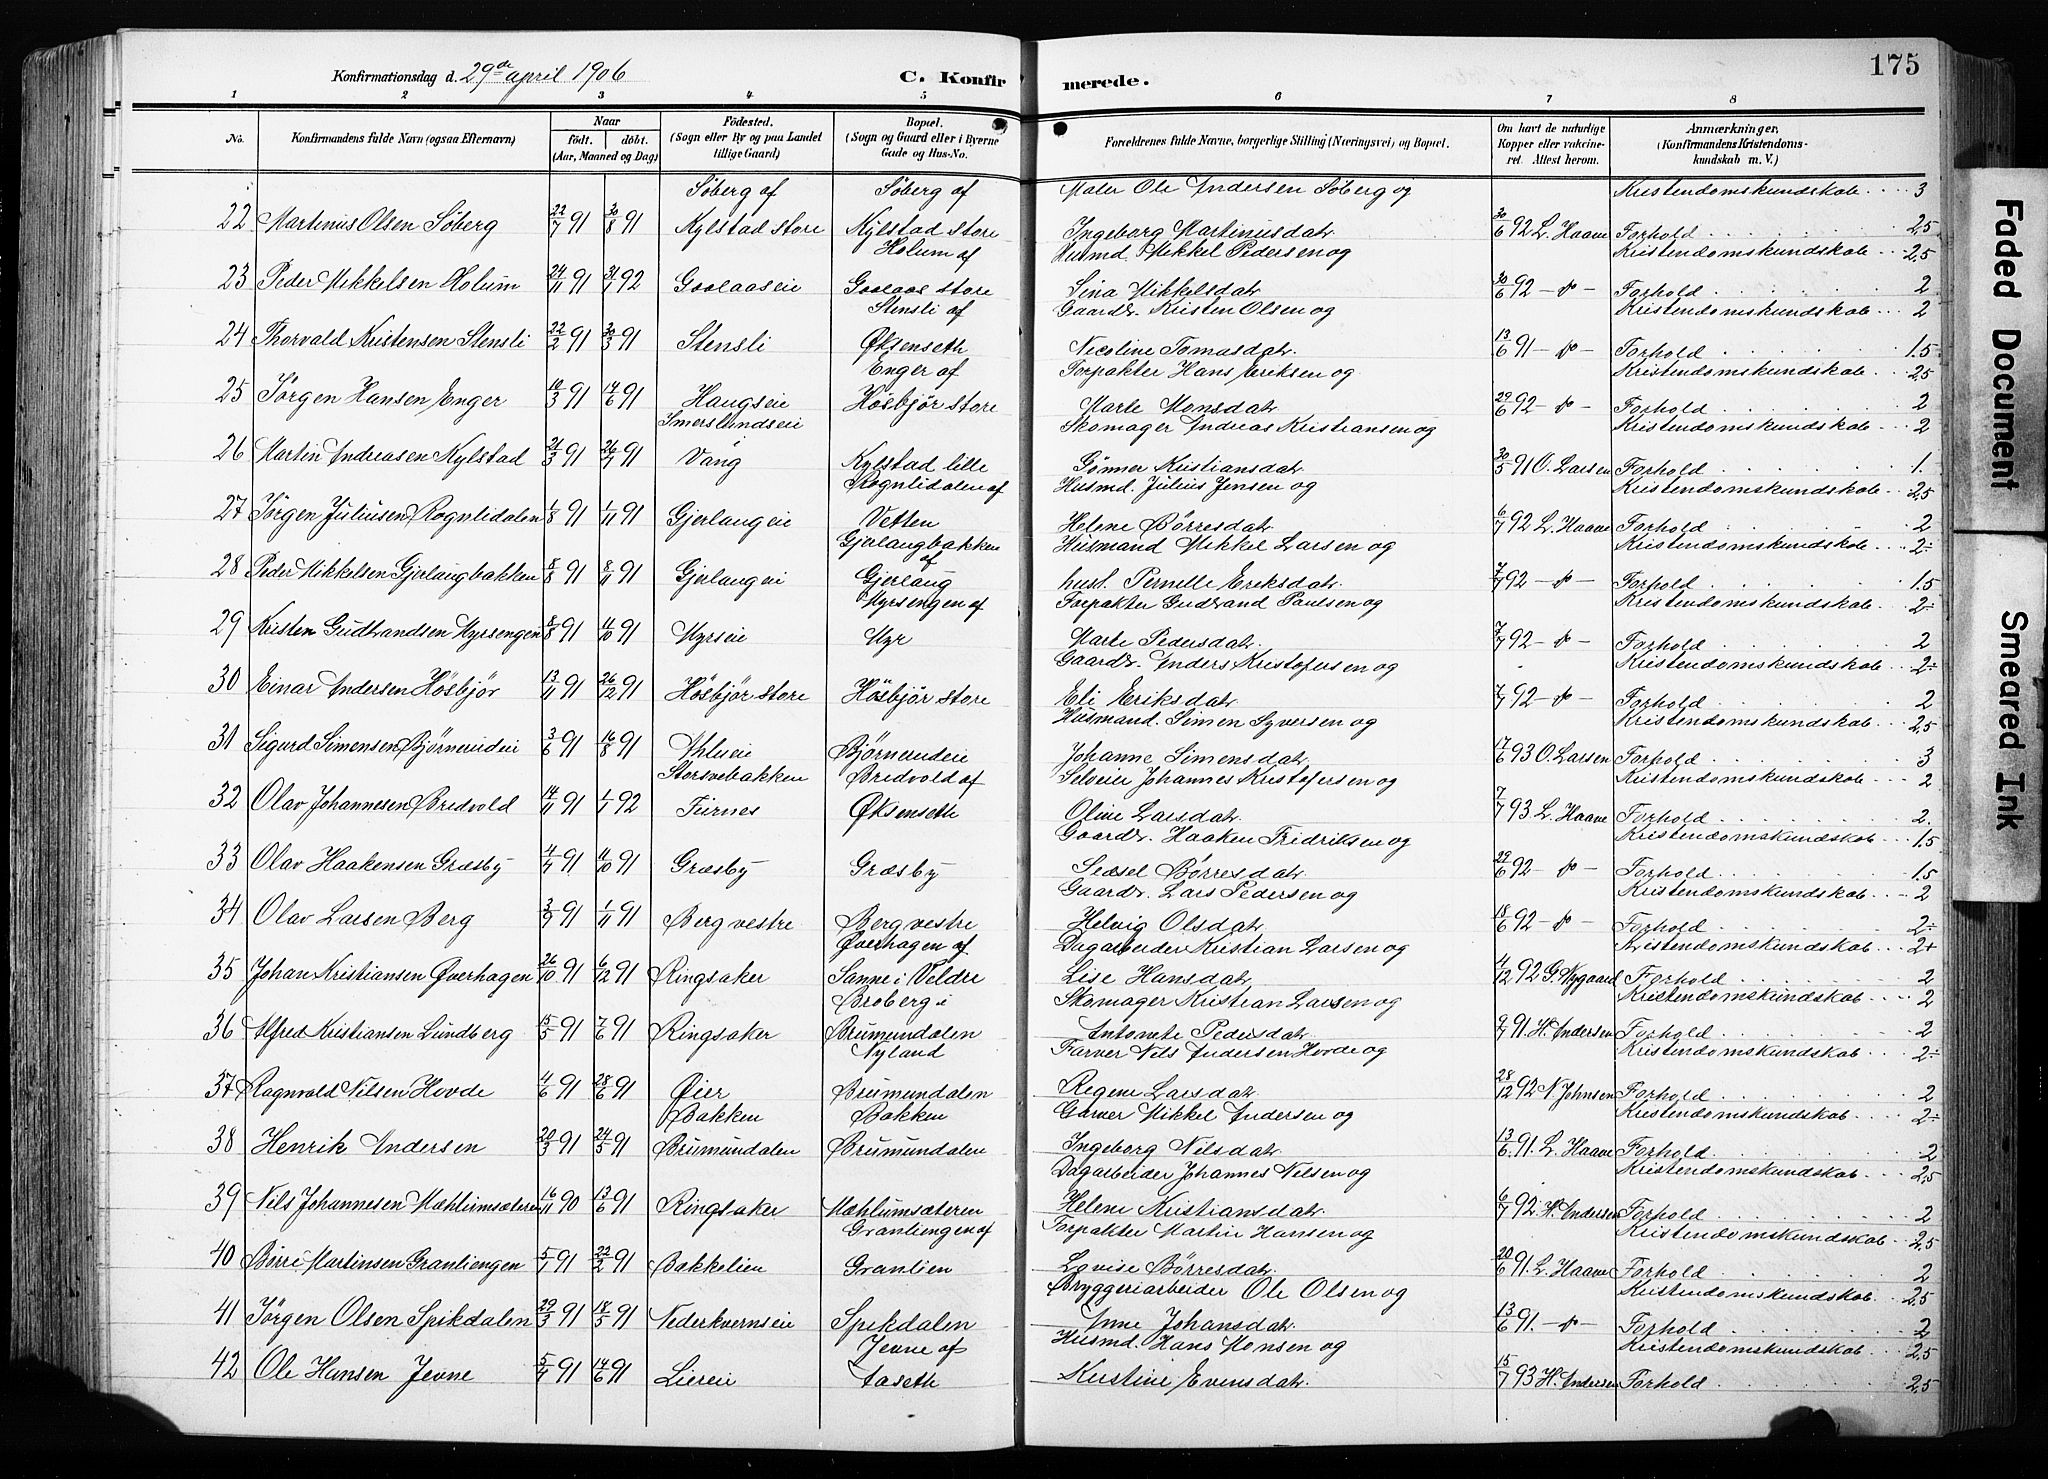 Konfirmationsdag d. 29de april 1906
C. Konfirmerede.
175
1 2 3 4 5 6 7 8
No.
Konfirmandens fulde Navn (ogsaa Efternavn)
Naar
født. døbt.
(Aar, Maaned og Dag)
Fødested.
(Sogn eller By og paa Landet
tillige Gaard)
Bopæl.
(Sogn og Gaard eller i Byerne
Gade og Hus-No.
Forældrenes fulde Navne, borgerlige Stilling (Næringsvei) og Bopæl.
Om havt de naturlige
Kopper eller vakcine-
ret. Attest herom.
Anmærkninger,
(Konfirmandens Kristendoms-
kundskab m. V.)
Søberg af Søberg af Maler Ole Andersen Søberg og Kristendomskundskab 3
22 Martinus Olsen Søberg 22/7 91 30/8 91 Kylstad store Kylstad store Ingeborg Martinusdat. 30/6 92 L. Haave Forhold 2,5
Holum af Husmd. Mikkel Pedersen og Kristendomskundskab 2,5
23 Peder Mikkelsen Holum 24/11 91 31/1 92 Gaalaaseie Gaalaas store Sina Mikkelsdat. 30/6 92 - " - Forhold 2
Stensli af Gaardbr. Kristen Olsen og Kristendomskundskab 2
24 Thorvald Kristensen Stensli 22/2 91 30/3 91 Stensli Øksenseth Nicoline Tomasdat. 13/6 91 - " - Forhold 1.5
Enger af Forpakter Hans Eriksen og Kristendomskundskab 2,5
25 Jørgen Hansen Enger 10/3 91 14/6 91 Haugseie Høsbjør store Marte Monsdat. 29/6 92 - " - Forhold 2
Imerslundseie Skomager Andreas Kristiansen og Kristendomskundskab 2
26 Martin Andreasen Kylstad 21/3 91 26/7 91 Vang Kylstad lille Gønner Kristiansdat. 30/5 91 O. Larsen Forhold 1.
Rognlidalen af Husmd. Julius Jensen og Kristendomskundskab 2,5
27 Jørgen Juliusen Rognlidalen 1/8 91 1/11 91 Gjerlaugeie Vetten Helene Børresdat. 6/7 92 L. Haave Forhold 2
Gjerlaugbakken Husmand Mikkel Larsen og Kristendomskundskab 2÷
28 Peder Mikkelsen Gjerlaugbakken 8/8 91 8/11 91 Gjerlaugeie af Gjerlaug hust. Pernille Eriksdat. 7/7 92 - " - Forhold 1.5
Myrsengen af Forpakter Gudbrand Paulsen og Kristendomskundskab 2÷
29 Kristen Gudbrandsen Myrsengen 8/8 91 4/10 91 Myrseie Myr Marte Pedersdat. 7/7 92 - " - Forhold 2
Gaardbr. Anders Kristofersen og Kristendomskundskab 2÷
30 Einar Andersen Høsbjør 13/11 91 26/12 91 Høsbjør store Høsbjør store Eli Eriksdat. 7/7 92 - " - Forhold 2
Husmand Simen Syversen og Kristendomskundskab 2,5
31 Sigurd Simensen Bjørnerudeie 3/6 91 16/8 91 Bjørnerudeie Johanne Simensdat. 17/6 93 O. Larsen Forhold 3
Storsvebakken Bredvold af Seleier Johannes Kristofersen og Kristendomskundskab 2
32 Olav Johannesen Bredvold 14/11 91 1/1 92 Furnes Øksenseth Oline Larsdat. 7/7 93 L. Haave Forhold 2.
Gaardbr. Haaken Fridriksen og Kristendomskundskab 1.5
33 Olav Haakensen Græsby 4/7 91 4/10 91 Græsby Græsby Sidsel Børresdat. 29/6 92 - " - Forhold 1.5
Gaardbr. Lars Pedersen og Kristendomskundskab 2
34 Olav Larsen Berg 3/9 91 1/11 91 Berg vestre Berg vestre Helvig Olsdat. 18/6 92 - " - Forhold 2÷
Øverhagen af Dagarbeider Kristian Larsen og Kristendomskundskab 2+
35 Johan Kristiansen Øverhagen 26/10 91 6/12 91 Ringsaker Sanne i Veldre Lise Hansdat. 4/12 92 G. Nygaard Forhold 2
Broberg i Skomager Kristian Larsen og Kristendomskundskab 2
36 Alfred Kristiansen Lundberg 15/5 91 7/6 91 Ringsaker Brumundalen Antonete Pedersdat. 9/7 91 H. Andersen Forhold 2
Nyland Farver Nils Andersen Hovde og Kristendomskundskab 2÷
37 Ragnvald Nilsen Hovde 4/6 91 28/6 91 Øier Brumundalen Regine Larsdat. 28/12 92 N. Johnsen Forhold 2
Bakken Bakken Garver Mikkel Andersen og Kristendomskundskab 2÷
38 Henrik Andersen 20/3 91 24/5 91 Brumundalen Brumundalen Ingeborg Nilsdat. 13/6 91. L. Haave Forhold 2
Dagarbeider Johannes Nilsen og Kristendomskundskab 2,5
39 Nils Johannesen Mæhlumsæteren 16/11 90 13/6 91 Ringsaker Mæhlumsæteren Helene Kristiansdat. 6/7 92 H. Andersen Forhold 2
Granliengen af Forpakter Martin Hansen og Kristendomskundskab 2,5
40 Børre Martinsen Granliengen 5/1 91 22/2 91 Bakkelien Granlien Lovise Børresdat. 20/6 91. L. Haave Forhold 2
Bryggeriarbeider Ole Olsen og Kristendomskundskab 2,5
41 Jørgen Olsen Spikdalen 29/3 91 18/5 91 Nederkvernseie Spikdalen Anne Johansdat. 13/6 91. - " - Forhold 2
Jevne af Husmd. Hans Monsen og Kristendomskundskab 2,5
42 Ole Hansen Jevne 5/4 91 14/6 91 Liereie Faseth Kristine Evensdat. 15/7 93 H. Andersen Forhold 2,5
Faded Document
Smeared Ink